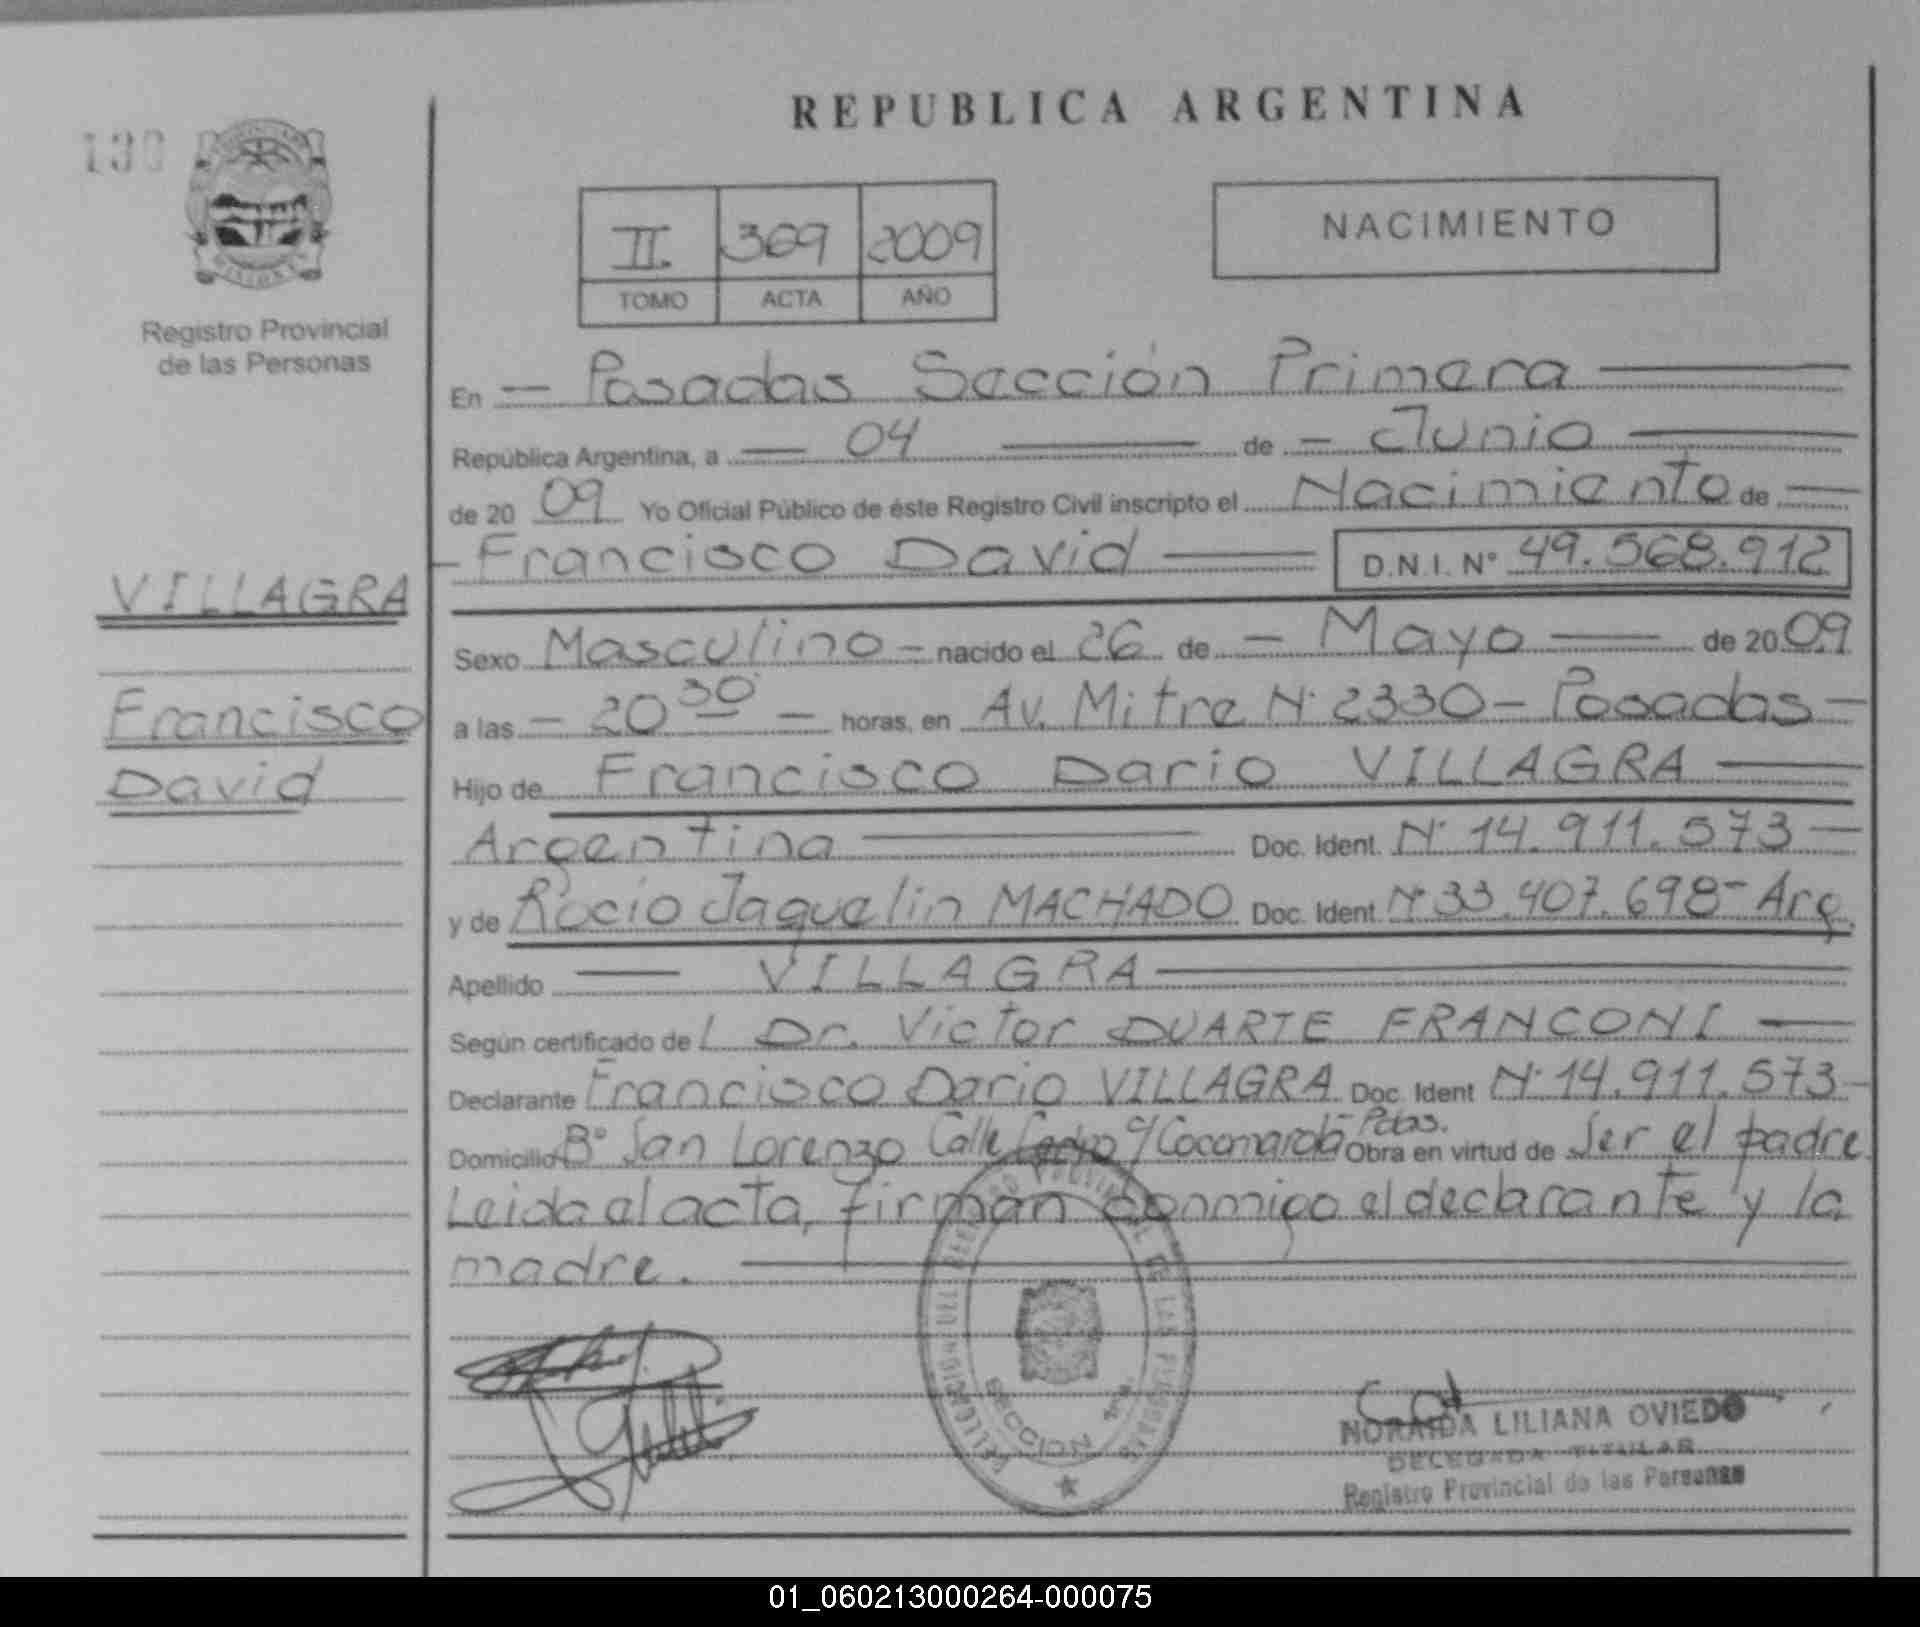 130
REPUBLICA ARGENTINA
II. 369 2009
TOMO ACTA AÑO
NACIMIENTO
MISIONES
Registro Provincial
de las Personas
En — Posadas Sección Primera —
República Argentina, a — 04 — de — Junio —
de 20 09 Yo Oficial Público de éste Registro Civil inscripto el Nacimiento de —
— Francisco David — D.N.I. N° 49.568.912
VILLAGRA
Francisco
David
Sexo Masculino — nacido el 26 de — Mayo — de 2009
a las — 20 30 — horas, en Av. Mitre N° 2330 — Posadas —
Hijo de Francisco Dario VILLAGRA —
Argentina — Doc. Ident. N° 14.911.573 —
y de Rocio Jaquelin MACHADO Doc. Ident N° 33.407.698 - Arg.
Apellido — VILLAGRA —
Según certificado de l Dr. Victor DUARTE FRANCONI —
Declarante Francisco Dario VILLAGRA Doc. Ident N° 14.911.573 —
Domicilio B° San Lorenzo Calle c/ Cocomarola - Pdas. Obra en virtud de Ser el padre
Leida el acta, firman conmigo el declarante y la
madre. —
SECCION 1ra
NORAIDA LILIANA OVIEDO
DELEGADA TITULAR
Registro Provincial de las Personas
01_060213000264-000075